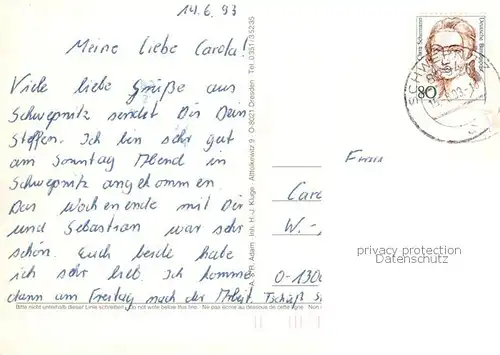 14.6.93
Meine liebe Carola!
Viele liebe Grüße aus
Schwepnitz sendet Dir Dein
Steffen. Ich bin sehr gut
am Sonntag Abend in
Schwepnitz angekommen.
Das Wochenende mit Dir
und Sebastian war sehr
schön. Euch beide habe
ich sehr lieb. Ich komme
dann am Freitag nach der Arbeit. Tschüß
Bitte nicht unterhalb dieser Linie schreiben · Do not write below this line · Ne pas écrire au dessous de cette ligne
A. & R. Adam · Inh. H.-J. Kluge · Altkaitz 9 · O-8021 Dresden · Tel. 0351/35235
Deutsche Bundespost
80
Frau
Caro
W.-,
O-1300
privacy protection
Datenschutz